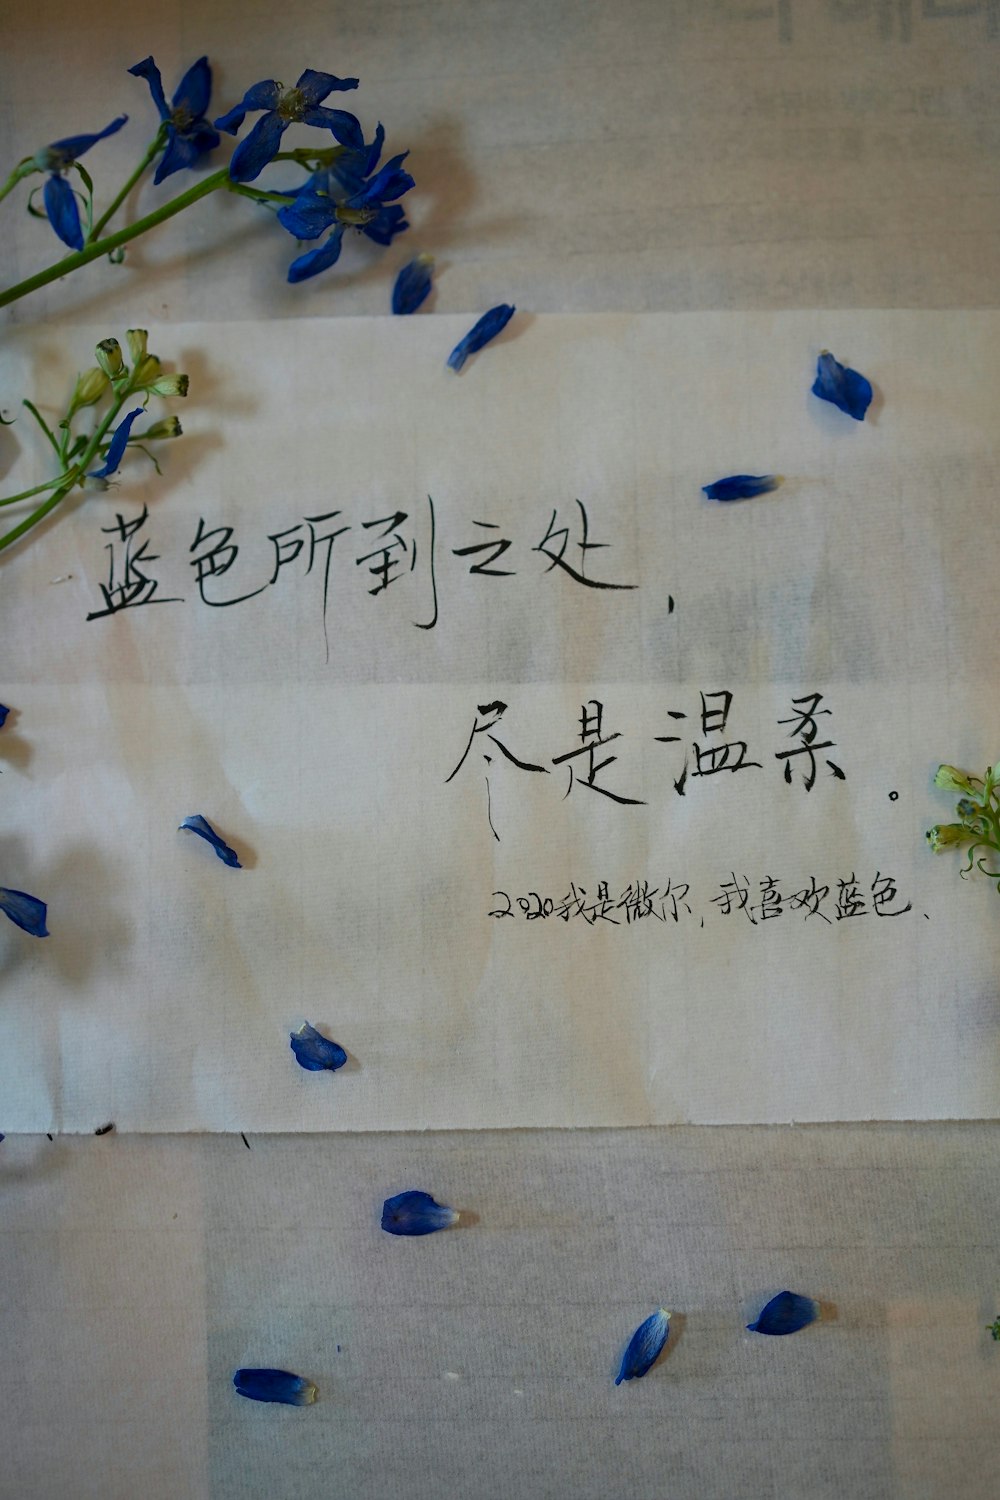 蓝色所到之处，
尽是温柔。
2020我是微尔，我喜欢蓝色、